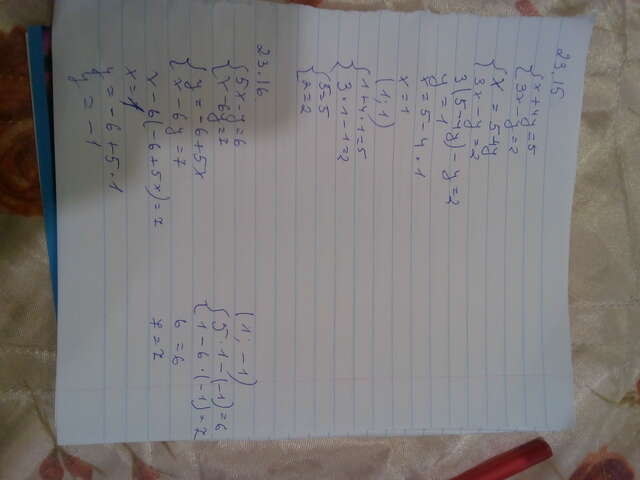 23.15
{x+4y=5
{3x-y=2
{x=5-4y
{3x-y=2
3(5-4y)-y=2
y=1
x=5-4·1
x=1
(1;1)
{1+4·1=5
{3·1-1=2
{5=5
{2=2
23.16
{5x-y=6
{x-6y=7
{y=-6+5x
{x-6y=7
x-6(-6+5x)=7
x=1
y=-6+5·1
y=-1
(1;-1)
{5·1-(-1)=6
{1-6·(-1)=7
6=6
7=7